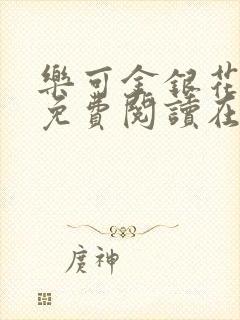 樂可金銀花
免費閱讀在
庹神